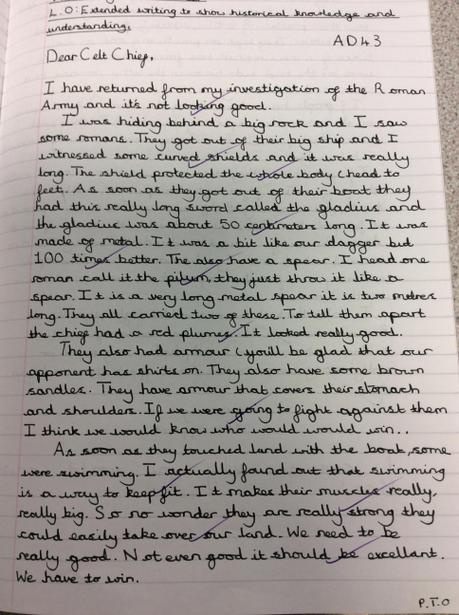 L.O: Extended writing to show historical knowledge and
understanding.
AD43
Dear Celt Chief,
I have returned from my investigation of the Roman
Army and it's not looking good.
I was hiding behind a big rock and I saw
some romans. They got out of their big ship and I
witnessed some curved shields and it was really
long. The shield protected the whole body (head to
feet. As soon as they got out of their boat they
had this really long sword called the gladius and
the gladius was about 50 centimeters long. It was
made of metal. It was a bit like our dagger but
100 times better. The also have a spear. I head one
roman call it the pilum, they just throw it like a
spear. It is a very long metal spear it is two metres
long. They all carried two of these. To tell them apart
the chief had a red plume. It looked really good.
They also had armour (you'll be glad that our
opponent has shirts on. They also have some brown
sandles. They have armour that covers their stomach
and shoulders. If we were going to fight against them
I think we would know who would would win..
As soon as they touched land with the boat, some
were swimming. I actually found out that swimming
is a way to keep fit. It makes their muscles really,
really big. So no wonder they are really strong they
could easily take over our land. We need to be
really good. Not even good it should be excellant.
We have to win.
P.T.O